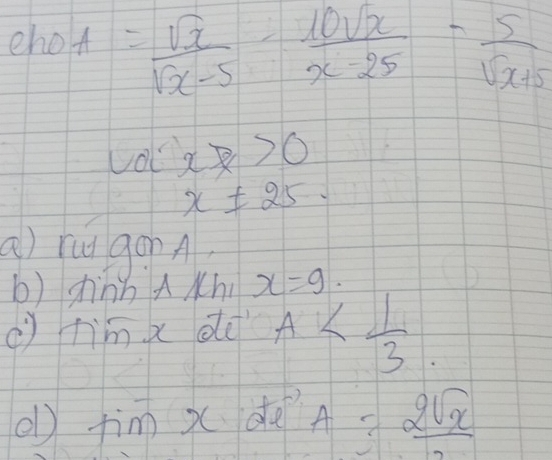 cho A = √x/(√x-5) - 10√x/(x-25) - 5/(√x+5)
Với x > 0
x ≠ 25.
a) rút gọn A.
b) tính A khi x=9.
c) tìm x để A < 1/3.
d) tìm x để A = 2√x